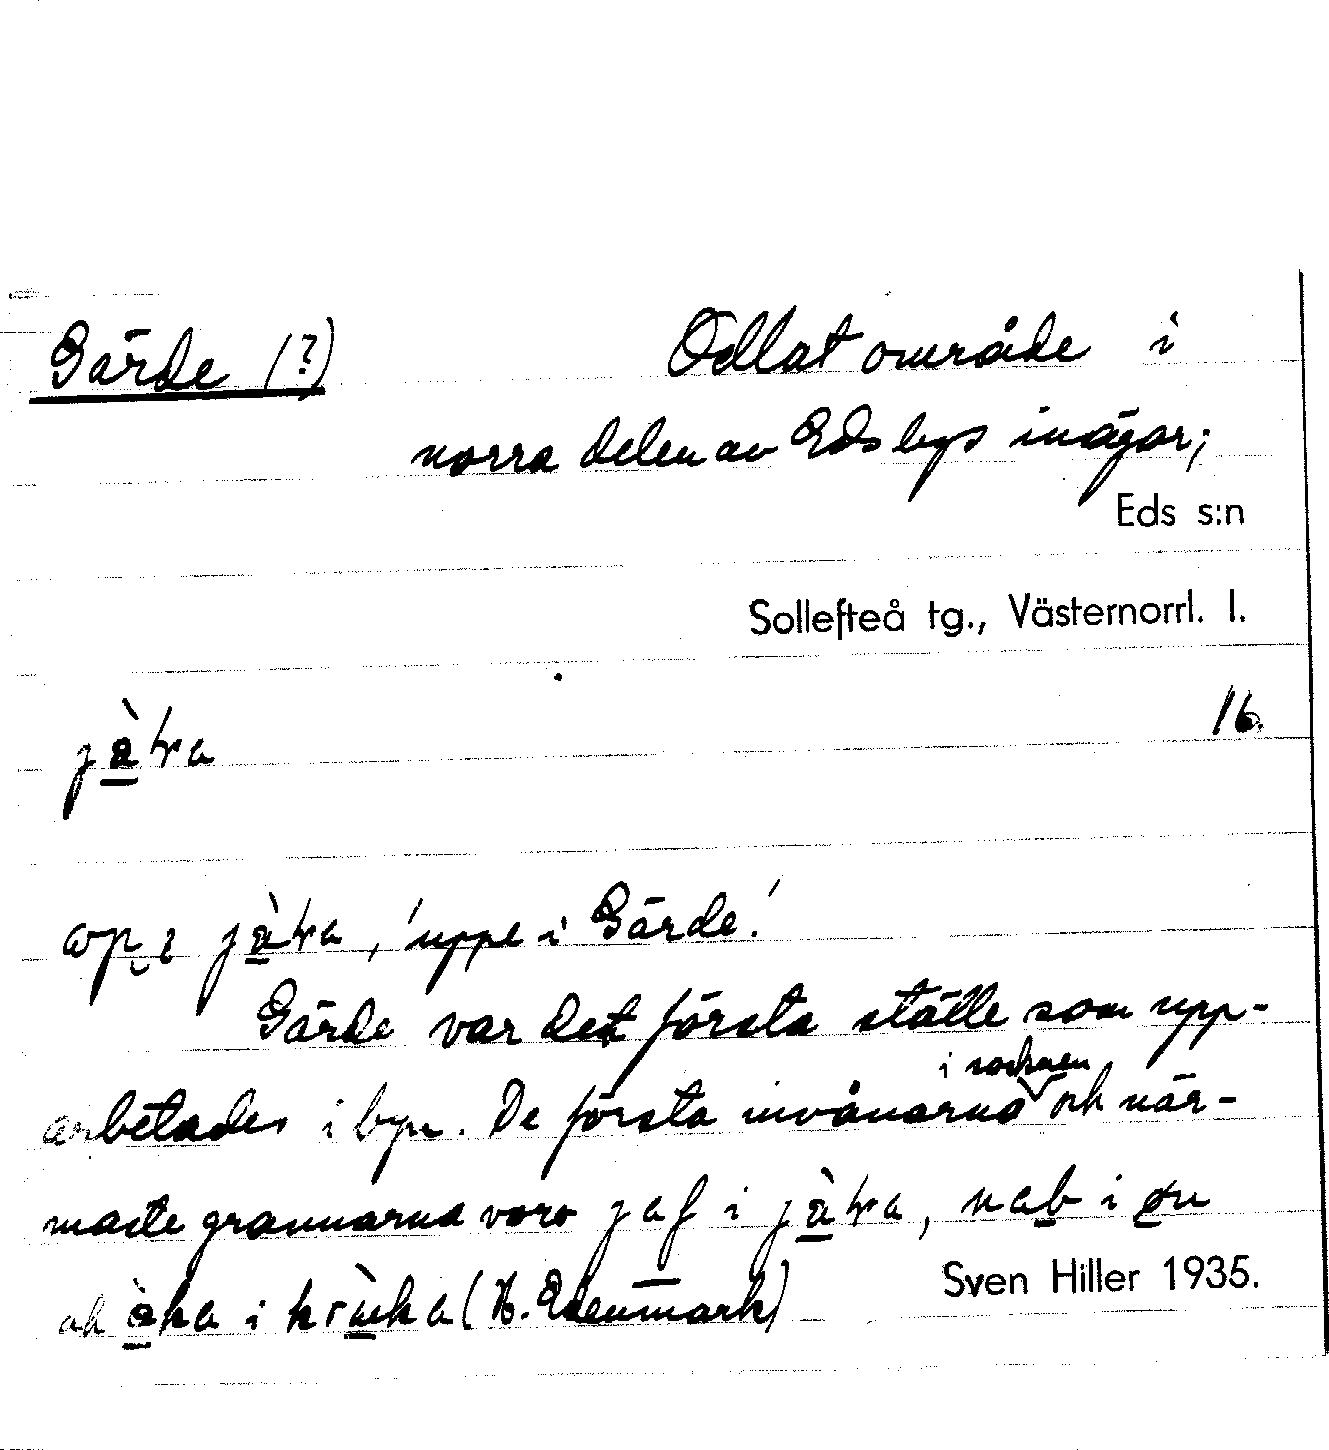 Gärde (?) Odlat område i
norra delen av Eds bys inägor;
Eds s:n
Sollefteå tg., Västernorrl. l.
16.
jàtra
i jàtra, 'uppe i Gärde.'
Gärde var det första ställe som upp-
arbetades i byn. De första invånarna i socknen och när-
maste grannarna voro jaf i jàtra, nab i
ok àka i kràka (H. Edenmark)
Sven Hiller 1935.